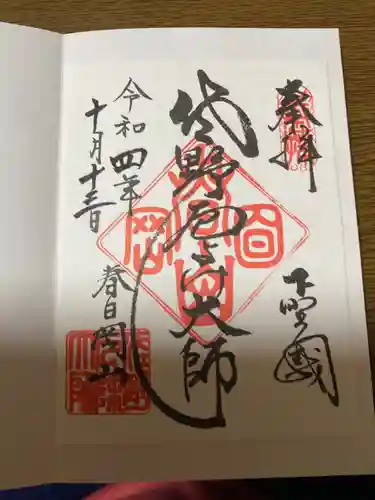 奉拝
下野國
佐野厄よけ大師
春日岡山
令和四年
十月十三日